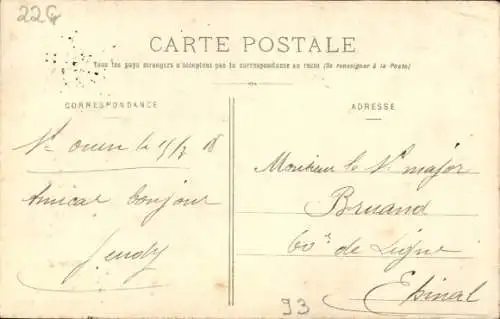 22G
CARTE POSTALE
Tous les pays étrangers n'acceptent pas la correspondance au recto (Se renseigner à la Poste)
CORRESPONDANCE
ADRESSE
St ouen le 15/7 08
Amical bonjour
Monsieur le major
Bruand
60e de Ligne
Epinal
93